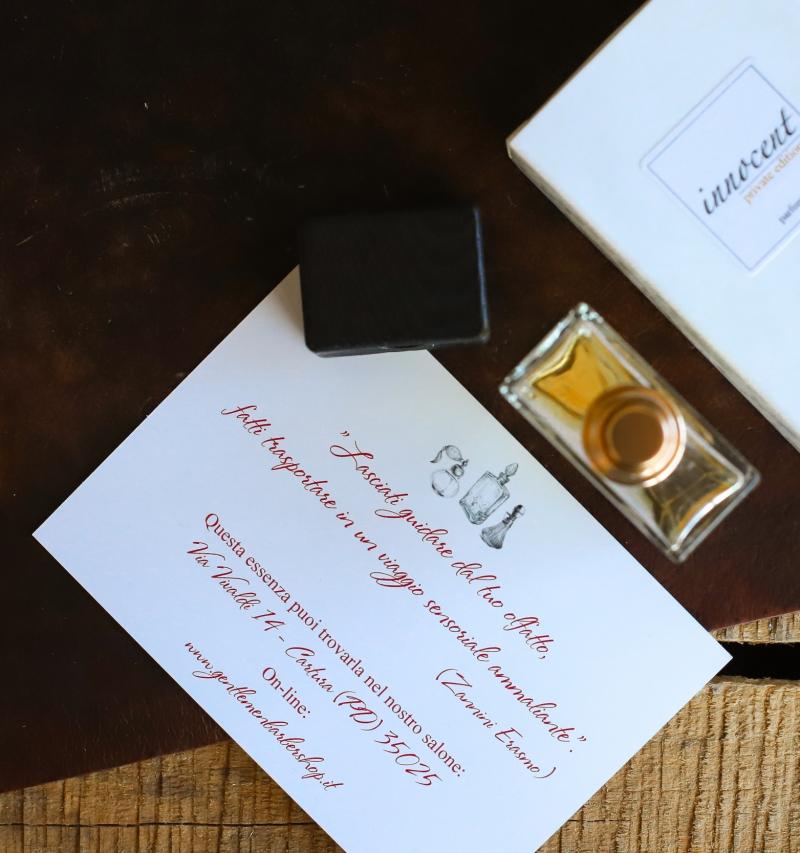 innocent
private edition
"Lasciati guidare dal tuo olfatto,
fatti trasportare in un viaggio sensoriale ammaliante".
(Zannini Erasmo)
Questa essenza puoi trovarla nel nostro salone:
Via Vivaldi 14 - Cartura (PD) 35025
On-line:
www.gentlemenbarbershop.it